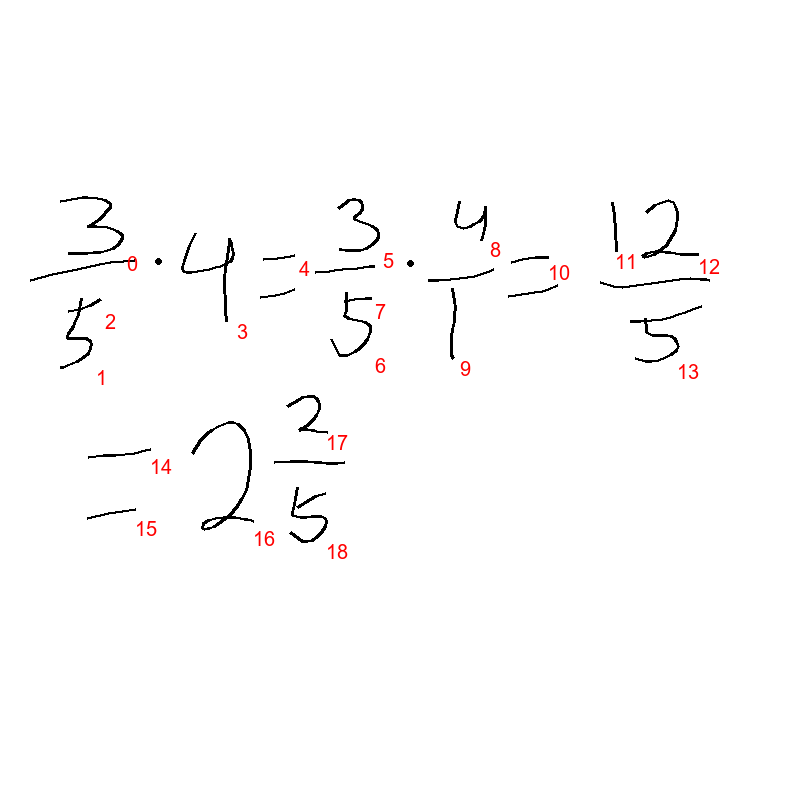 3/5 · 4 = 3/5 · 4/1 = 12/5
= 2 2/5
0 1 2 3 4 5 6 7 8 9 10 11 12 13 14 15 16 17 18